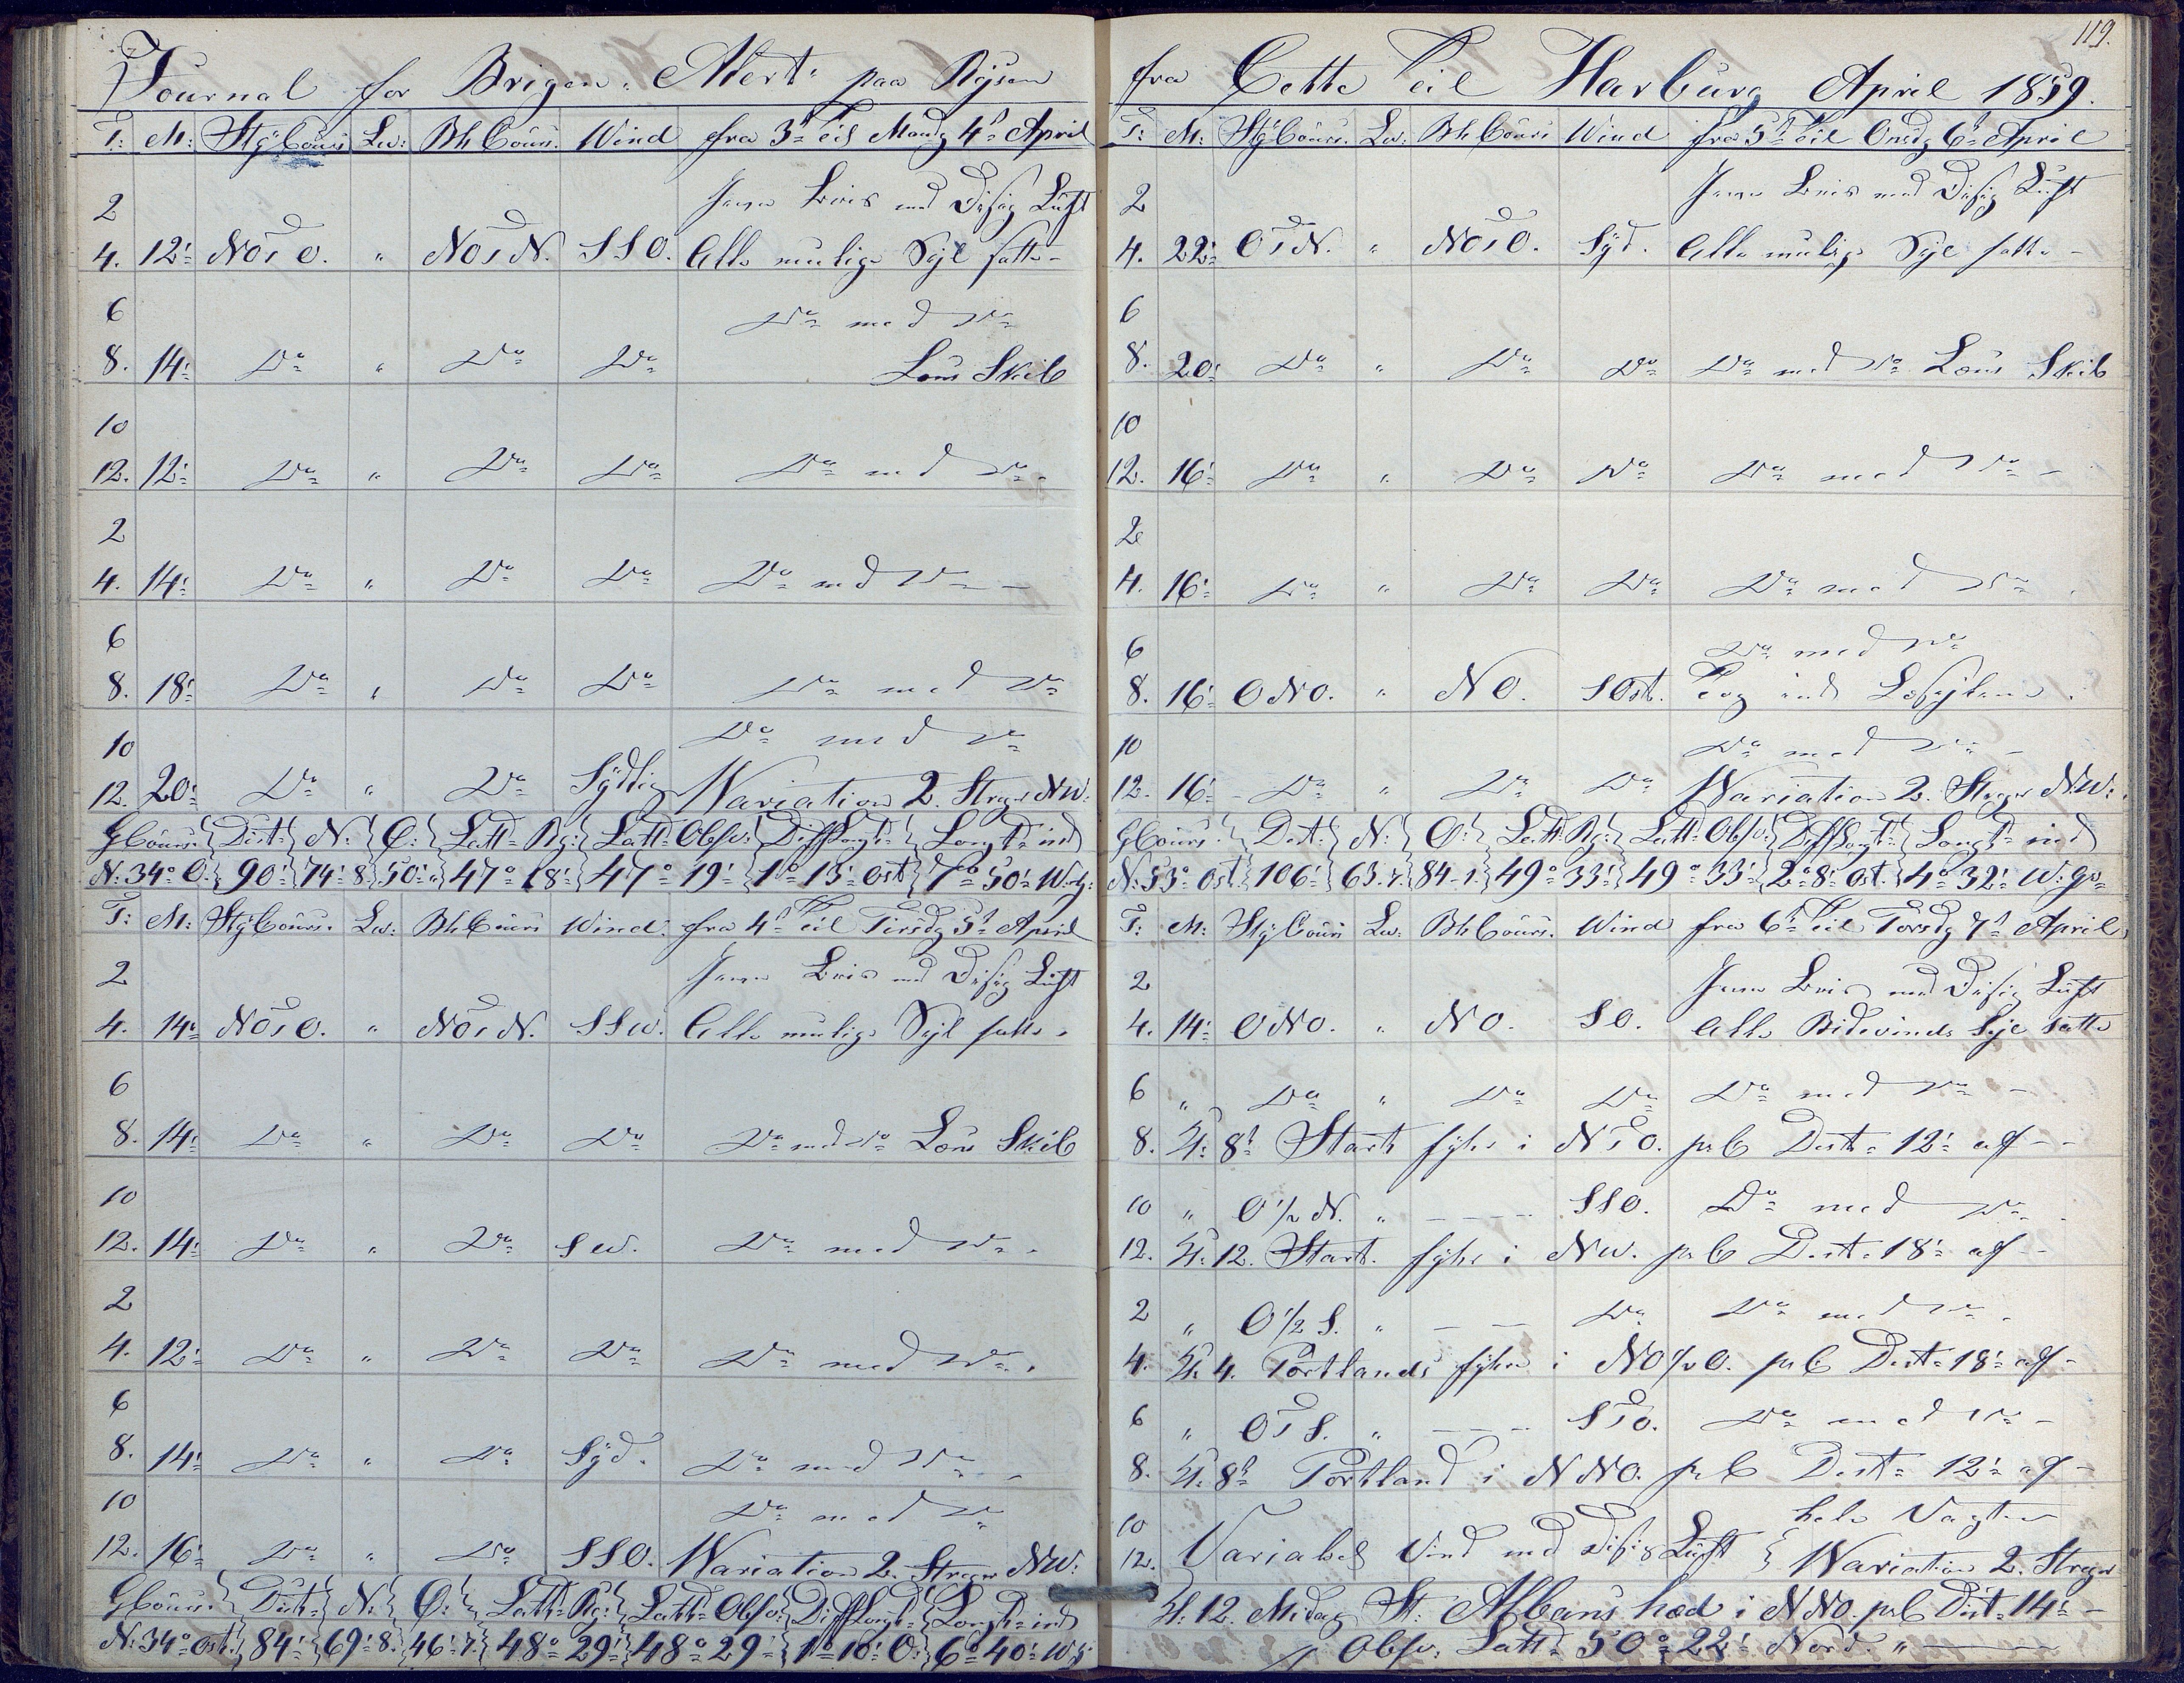 Journal for Brigen "Alert" paa Rejsen
T: M: StyCours Lw: BhCours. Wind fra 3d til Mandg 4d April
2 Jevn Bris med Disig Luft
4. 12' NOtO. " NOtN. SSO. Alle mulige Sejl satte -
6 Do med Do
8. 14' Do " Do Do Lens Skib
10
12. 12' Do " Do Do Do med Do.
2
4. 14' Do " Do Do Do med Do -
6
8. 18' Do " Do Do Do med Do
10 Do med Do
12. 20' Do " Do Sydlig Wariation 2. Streger NW:
GCours: Dist: N: O: Latt: Bg: Latt: Obsv: DiffLongt: Longt: ind
N: 34° O. 90' 74' 8 50' " 47° 18' 47° 19' 1° 13' Ost 7° 50' W
T: M: StyCours. Lw: BhCours Wind. fra 4d til Tirsdg 5d April
2 Jevn Bris med Disig Luft
4. 14' NOtO. " NOtN. SSW. Alle mulige Sejl satte.
6
8. 14' Do " Do Do Do med Do Lens Skib
10
12. 14' Do " Do SW. Do med Do.
2
4. 12' Do " Do Do Do med Do.
6
8. 14' Do " Do Syd. Do med Do
10 Do med Do
12. 16' Do " Do SSO. Wariation 2. Streger NW:
GCours: Dist: N: O: Latt: Bg: Latt: Obsv: DiffLongt: Longt: ind
N: 34° Ost. 84' 69' 8. 46' 7. 48° 29' 48° 29' 1° 10' O. 6° 40' W
119.
fra Cette til Harburg April 1859.
T: M: StyCours. Lw: BhCours Wind fra 5d til Onsdg 6d April
2 Jevn Bris med Disig Luft
4. 22' OtN. " NOtO. Syd. Alle mulige Sejl satte -
6
8. 20' Do " Do Do Do med Do Lens Skib
10
12. 16' Do " Do Do Do med Do -
2
4. 16' Do " Do Do Do med Do
6 Do med Do
8. 16' ONO. " NO. SOst. Tog ind Læsejlene.
10 Do med Do -
12. 16' Do " Do Do Wariation 2. Streger NW:
GCours: Dist: N: O: Latt: Bg: Latt: Obsv: DiffLongt: Longt: ind
N: 53° Ost. 106' 63. 7. 84. 1. 49° 33' 49° 33' 2° 8' Ost. 4° 32' W:
T: M: StyCours Lw: BhCours. Wind fra 6d til Torsdg 7d April
2 Jevn Bris med Disig Luft
4. 14' ONO. " NO. SO. Alle Bidevinds Sejl satte
6 " Do " Do Do Do med Do -
8. Kl: 8t Start fyhr i NtO. prC Dist: 12' af - -
10 " O 1/2 N. " - - - - SSO. Do med Do.
12. Kl: 12. Start. fyhr i NW. prC Dist: 18' af - -
2 " O 1/2 S. " - - Do Do med Do.
4. Kl. 4. Portlands fyhre i NO 1/2 O. prC Dist: 18' af -
6 " OtS. " - - - StO. Do med Do -
8. Kl: 8t Portland i NNO. prC Dist: 12' af -
10 hele Vagten
12. Variabel Vind med disig Luft Wariation 2. Streger
Kl: 12. Midag St: Albans hæd i NNO. prC Dist: 14' -
Obsv: Latt: 50° 22' Nord. "